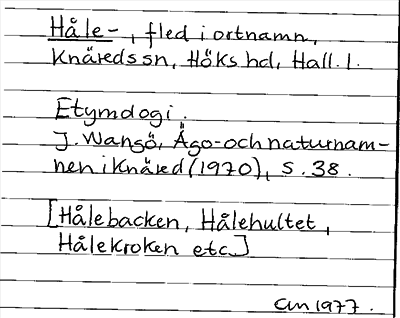 Håle-, fled i ortnamn,
Knäreds sn, Höks hd, Hall. l.
Etymologi.
J. Wangö, Ägo- och naturnam-
nen i Knäred (1970), s. 38.
[Hålebacken, Hålehultet,
Hålekroken etc.]
CM 1977.